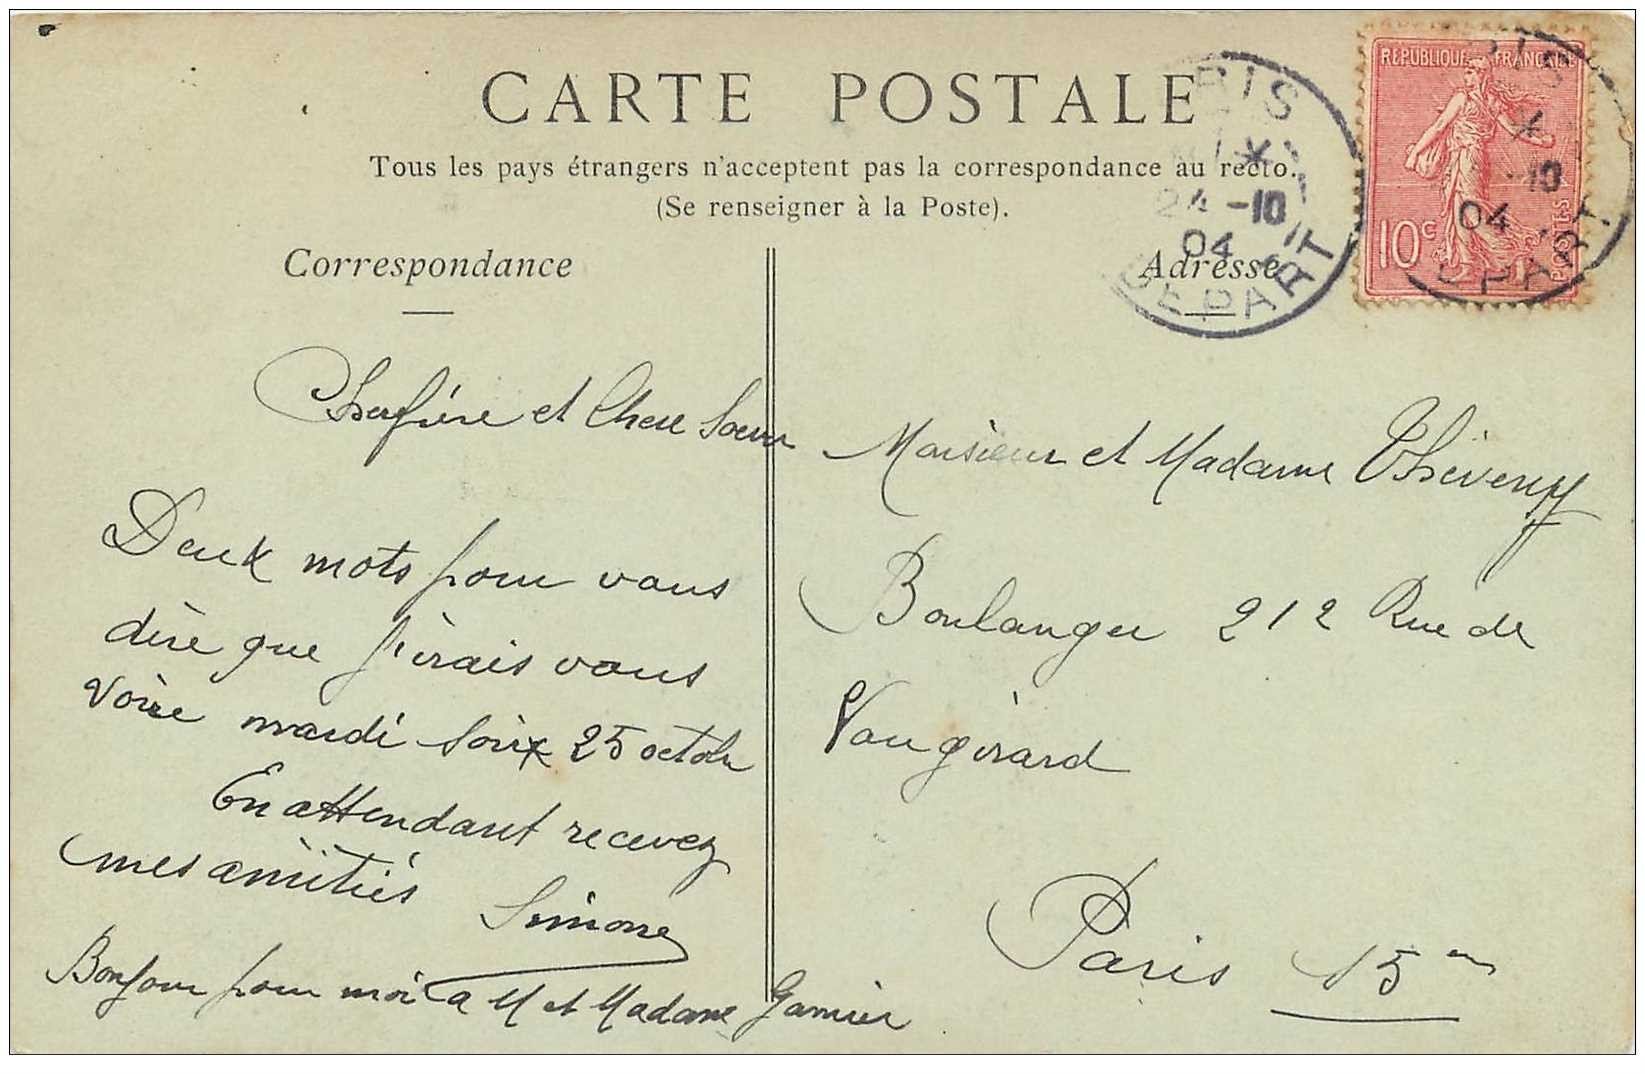 CARTE POSTALE
Tous les pays étrangers n'acceptent pas la correspondance au recto.
(Se renseigner à la Poste).
Correspondance
Adresse
RIS
24 -10
04
DEPART
REPUBLIQUE FRANÇAISE
10c
POSTES
RIS
-10
04
DEPART
Cher frère et Chere Soeur
Deux mots pour vous
dire que j'irais vous
voire mardi soir 25 octobre
En attendant recevez
mes amitiés
Simone
Bonjour pour moi a M et Madame Garnier
Monsieur et Madame
Boulanger 212 Rue de
Vaugirard
Paris 15em